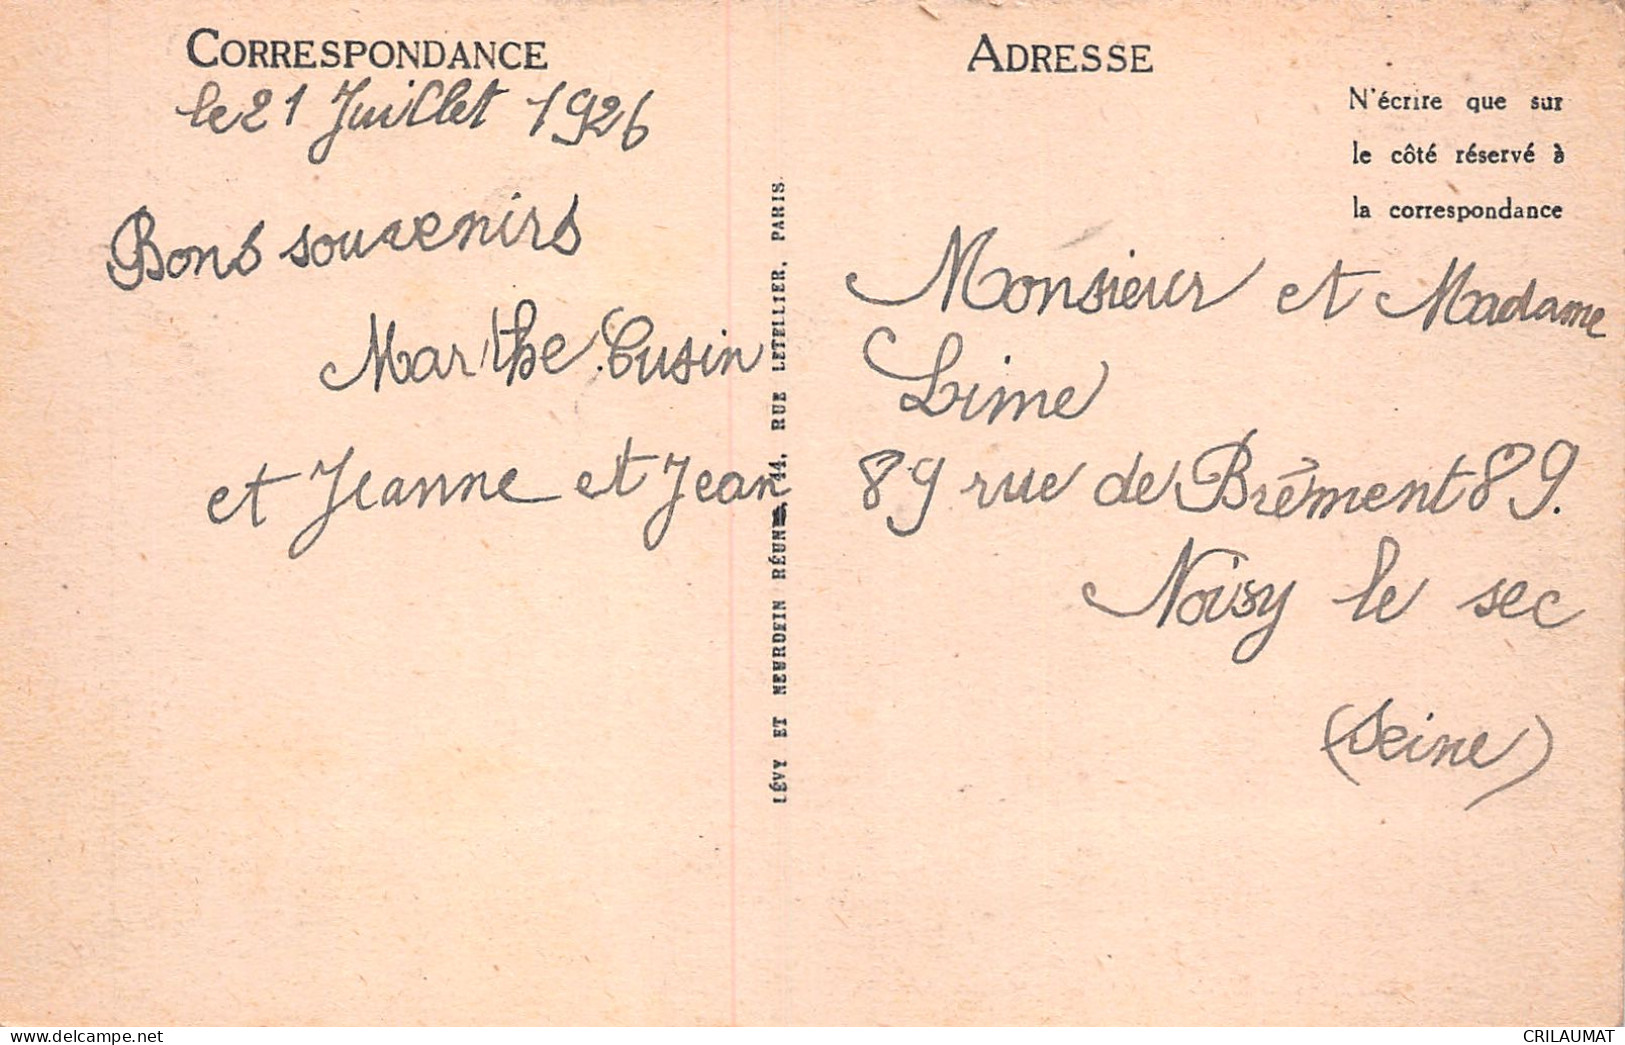 CORRESPONDANCE
le 21 Juillet 1926
Bons souvenirs
Marthe Cusin
et Jeanne et Jean
LÉVY ET NEURDEIN RÉUNIS, 44, RUE LETELLIER, PARIS
ADRESSE
N'écrire que sur
le côté réservé à
la correspondance
Monsieur et Madame
Lime
89 rue de Brément 89.
Noisy le sec
(Seine)
CRILAUMAT